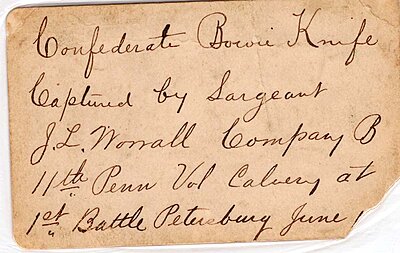 Confederate Bowie Knife
Captured by Sargeant
J. L. Worrall Company B
11th Penn Vol Calvery at
1st Battle Petersburg June